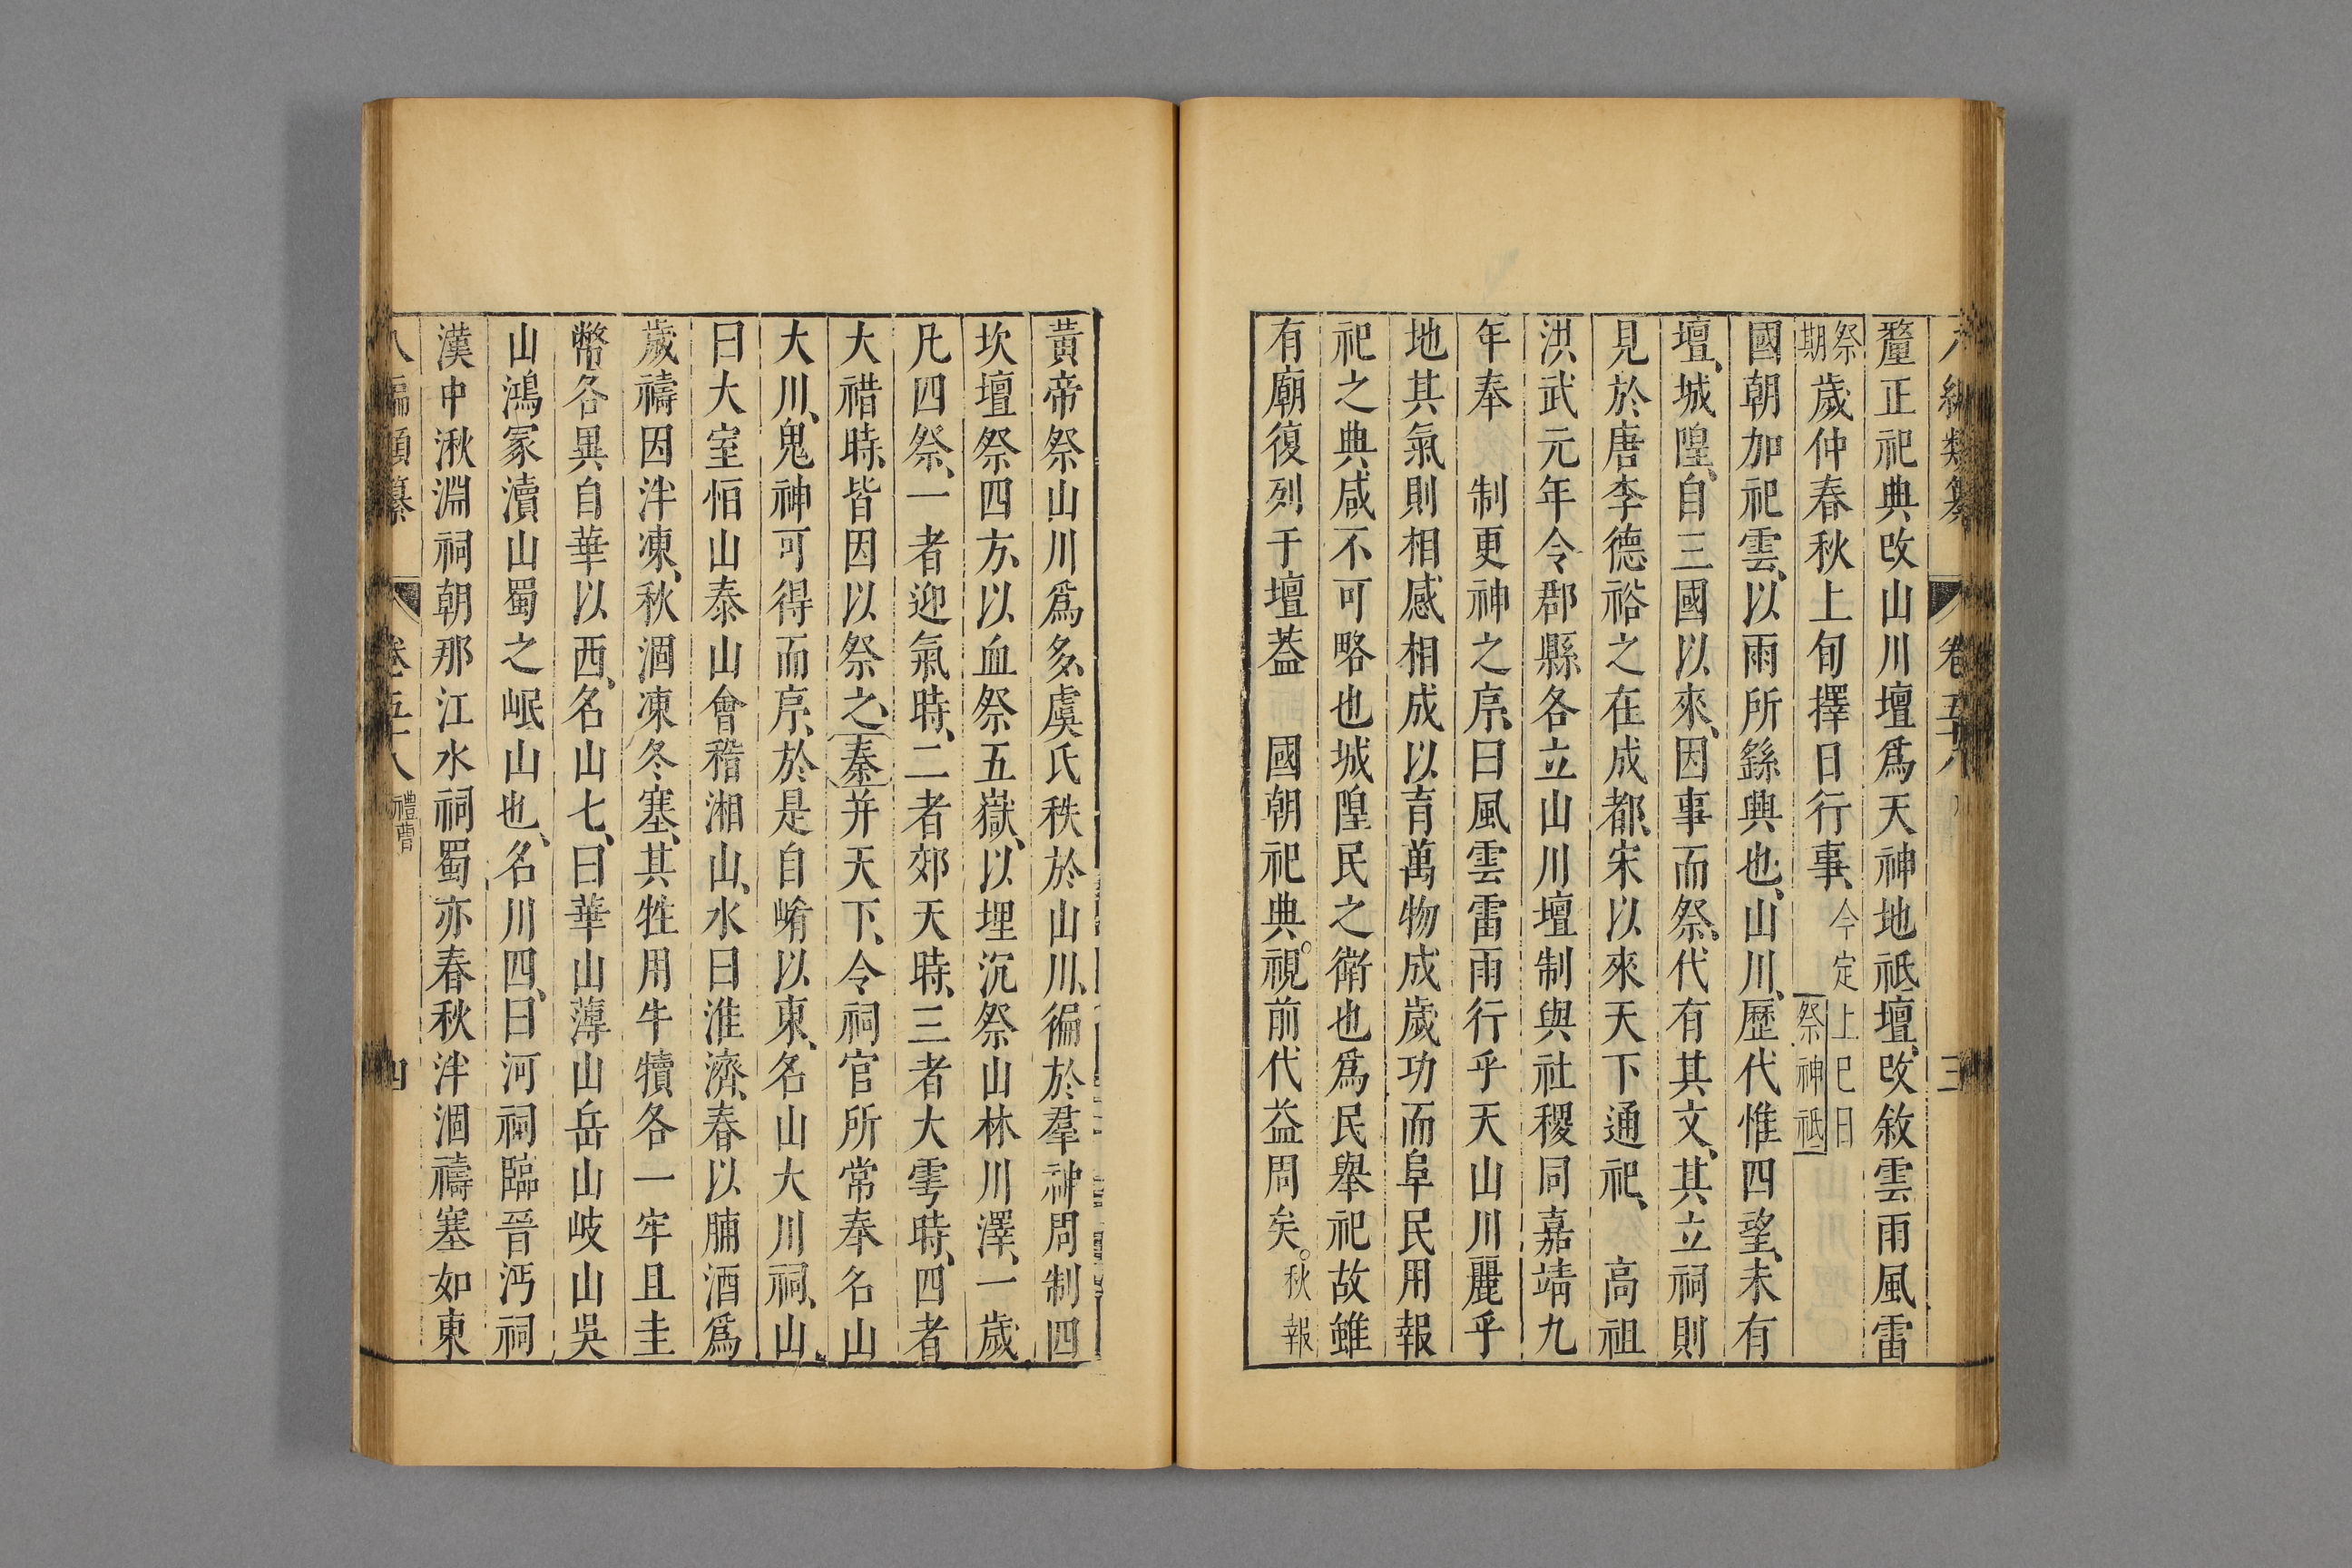 八編類纂 卷五十八 三
釐正祀典改山川壇爲天神地祇壇、改敘雲雨風雷
祭期歲仲春秋上旬擇日行事、今定上巳日祭神祇
國朝加祀雲、以雨所繇興也、山川、歷代惟四望、未有
壇、城隍、自三國以來、因事而祭、代有其文、其立祠則
見於唐李德裕之在成都、宋以來天下通祀、 高祖
洪武元年令郡縣各立山川壇制與社稷同嘉靖九
年奉 制更神之序、曰風雲雷雨行乎天山川麗乎
地其氣則相感相成以育萬物成歲功而阜民用報
祀之典咸不可略也城隍民之衛也爲民舉祀故雖
有廟復列于壇葢 國朝祀典。視前代益周矣。秋報
黃帝祭山川爲多、虞氏秩於山川、徧於羣神周制四
坎壇祭四方、以血祭五嶽、以埋沉祭山林川澤、一歲
凡四祭、一者迎氣時、二者郊天時、三者大雩時、四者
大禮時、皆因以祭之、秦并天下、令祠官所常奉名山
大川、鬼神可得而序、於是自崤以東、名山大川祠、山
曰大室恒山泰山會稽湘山、水曰淮濟、春以脯酒爲
歲禱因泮凍、秋涸凍冬塞、其牲用牛犢各一牢且圭
幣各異自華以西、名山七、曰華山薄山岳山岐山吳
山鴻冢瀆山蜀之岷山也、名川四、曰河祠臨晉沔祠
漢中湫淵祠朝那江水祠蜀亦春秋泮涸禱塞如東
八編類纂 卷五十八 禮曹 四